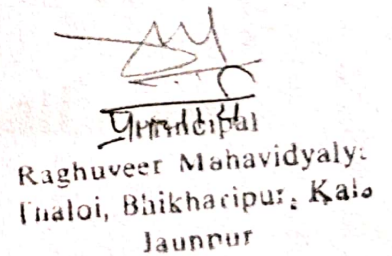 Principal
Raghuveer Mahavidyaly.
Thaloi, Bhikharipur, Kala
Jaunpur